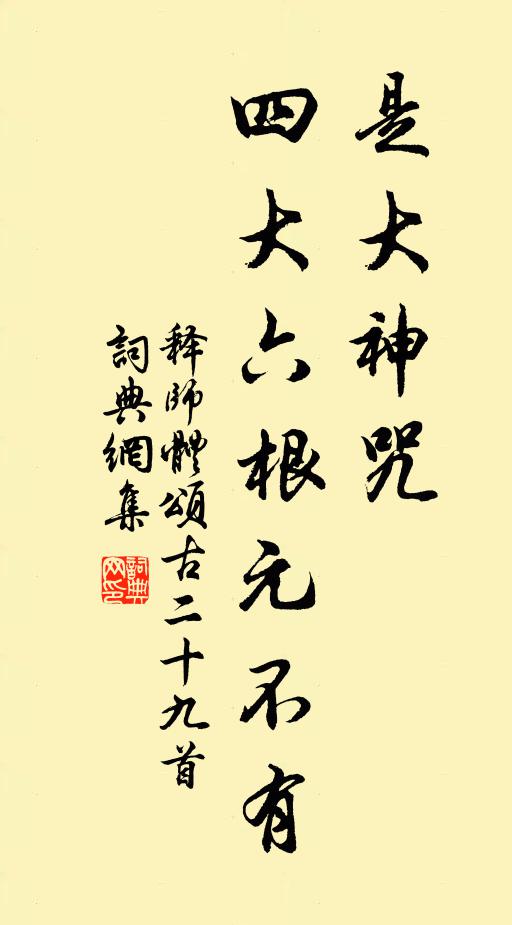 是大神咒
四大六根元不有
释師體頌古二十九首
詞典網集
詞典
网印